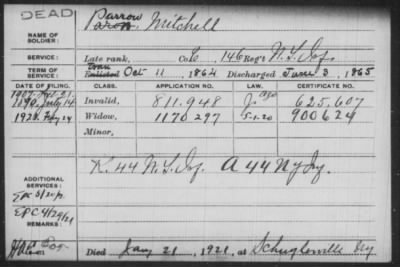 DEAD
Darrow
Mitchell
NAME OF SOLDIER:
SERVICE:
Late rank, Co. 146 Reg't N.Y. Inf.
TERM OF SERVICE:
Enlisted Oct 11, 1862 Discharged June 3, 1865
DATE OF FILING. CLASS. APPLICATION NO. LAW. CERTIFICATE NO.
1890. July 14 Invalid, 811.948 625.607
1921. Widow, 1170297 5-1-20 900629
Minor,
ADDITIONAL SERVICES:
K. 44 N.Y. Inf. A 44 N Y Inf.
EPC 4/29/21
Died Jany 21, 1921, at Schuylerville